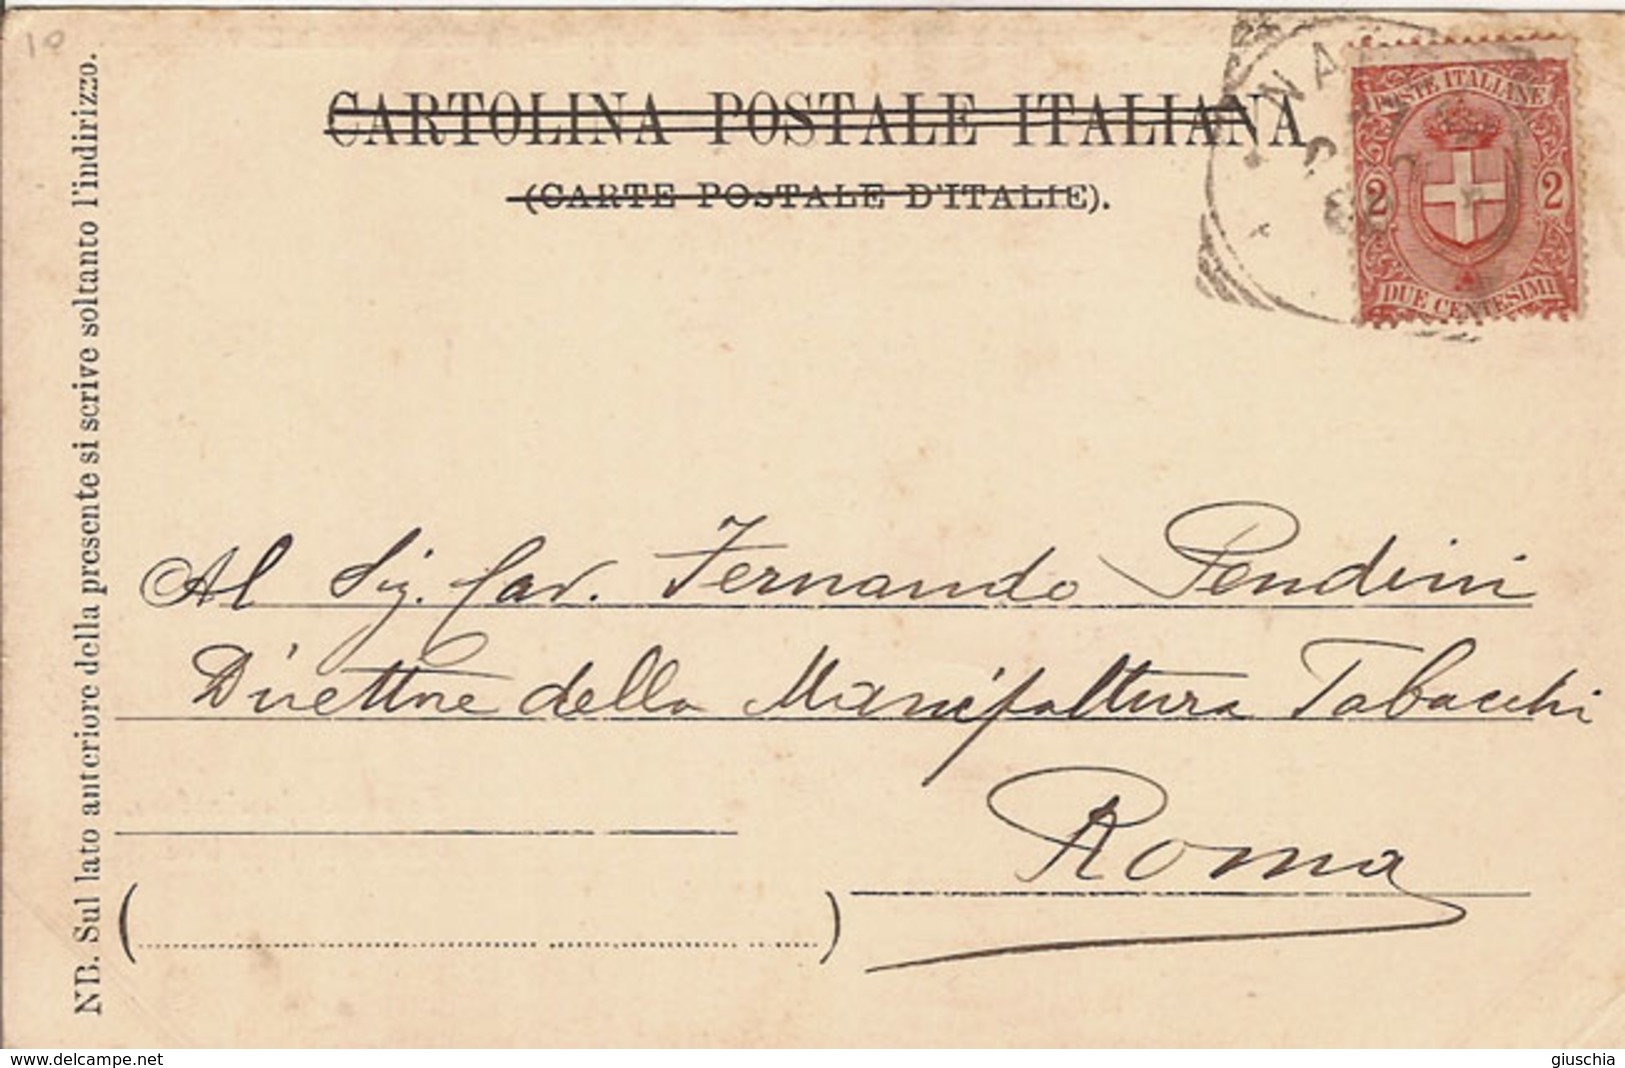 10
CARTOLINA POSTALE ITALIANA
(CARTE POSTALE D'ITALIE).
POSTE ITALIANE
2 2
DUE CENTESIMI
NB. Sul lato anteriore della presente si scrive soltanto l'indirizzo.
Al Sig. Cav. Fernando Pendini
Direttore della Manifattura Tabacchi
Roma
www.delcampe.net
giuschia